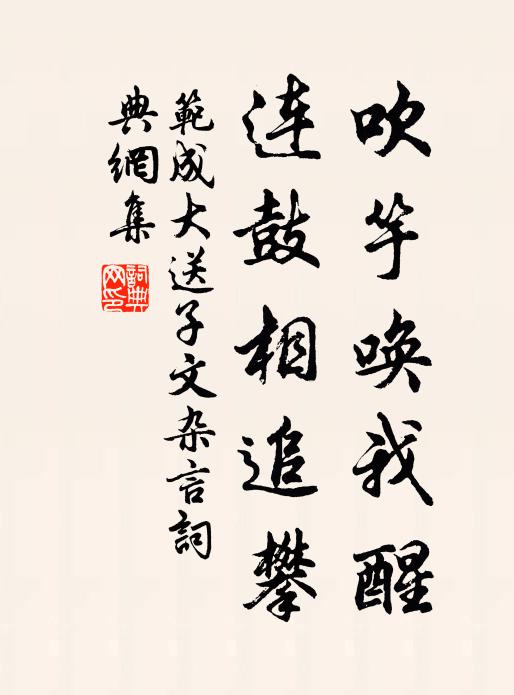 吹竽唤我醒
连鼓相追攀
範成大送子文杂言詞
典網集
詞典網印